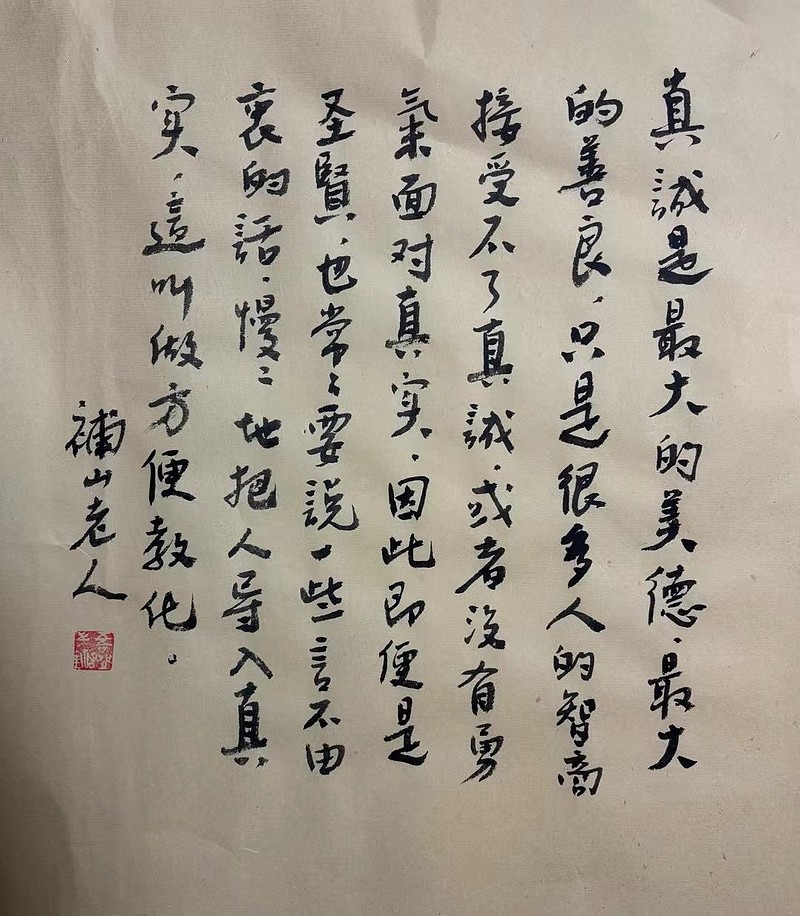 真誠是最大的美德、最大
的善良、只是很多人的智商
接受不了真誠、或者没有勇
氣面对真实、因此即便是
圣賢、也常〻要説一些言不由
衷的話、慢〻地把人导入真
实、這叫做方便教化。
補山老人